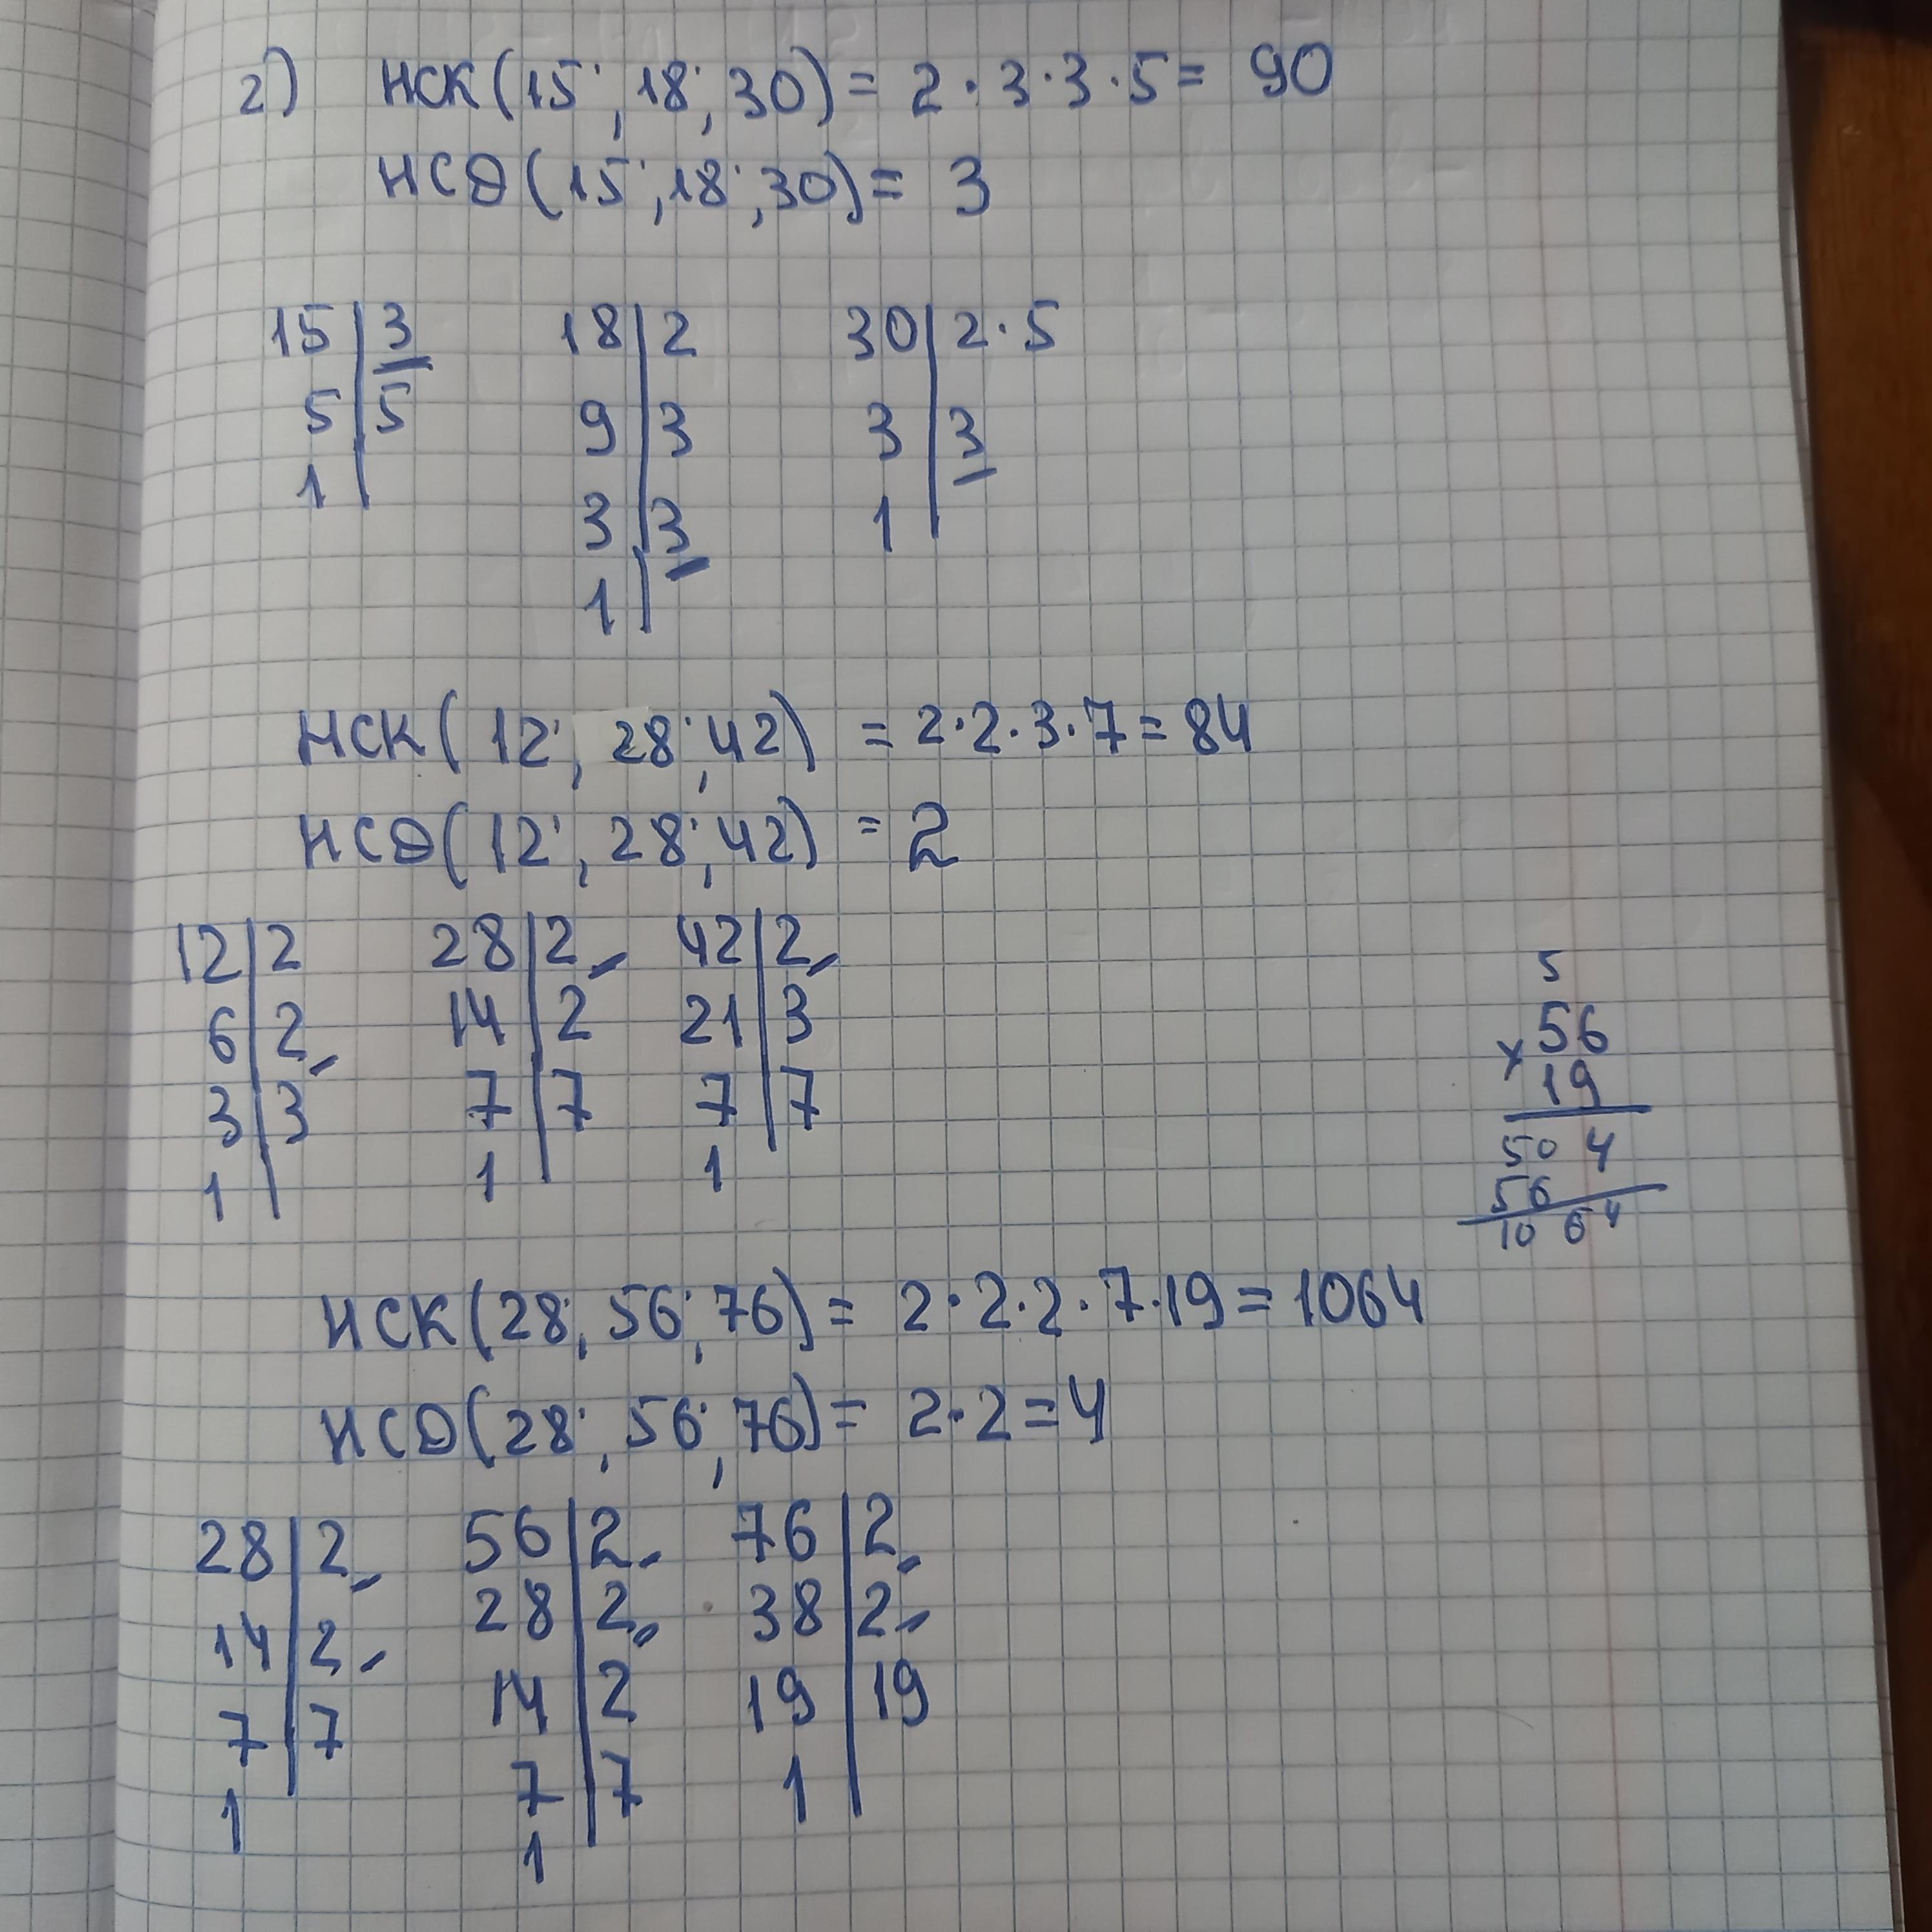 2) НСК(15; 18; 30) = 2·3·3·5 = 90
НСД(15; 18; 30) = 3
15 | 3 18 | 2 30 | 2·5
5 | 5 9 | 3 3 | 3
1 | 3 | 3 1 |
1 |
НСК(12; 28; 42) = 2·2·3·7 = 84
НСД(12; 28; 42) = 2
12 | 2 28 | 2 42 | 2
6 | 2 14 | 2 21 | 3
3 | 3 7 | 7 7 | 7
1 | 1 | 1
5
56
× 19
504
56
1064
НСК(28; 56; 76) = 2·2·2·7·19 = 1064
НСД(28; 56; 76) = 2·2 = 4
28 | 2 56 | 2 76 | 2
14 | 2 28 | 2 38 | 2
7 | 7 14 | 2 19 | 19
1 7 | 7 1 |
1